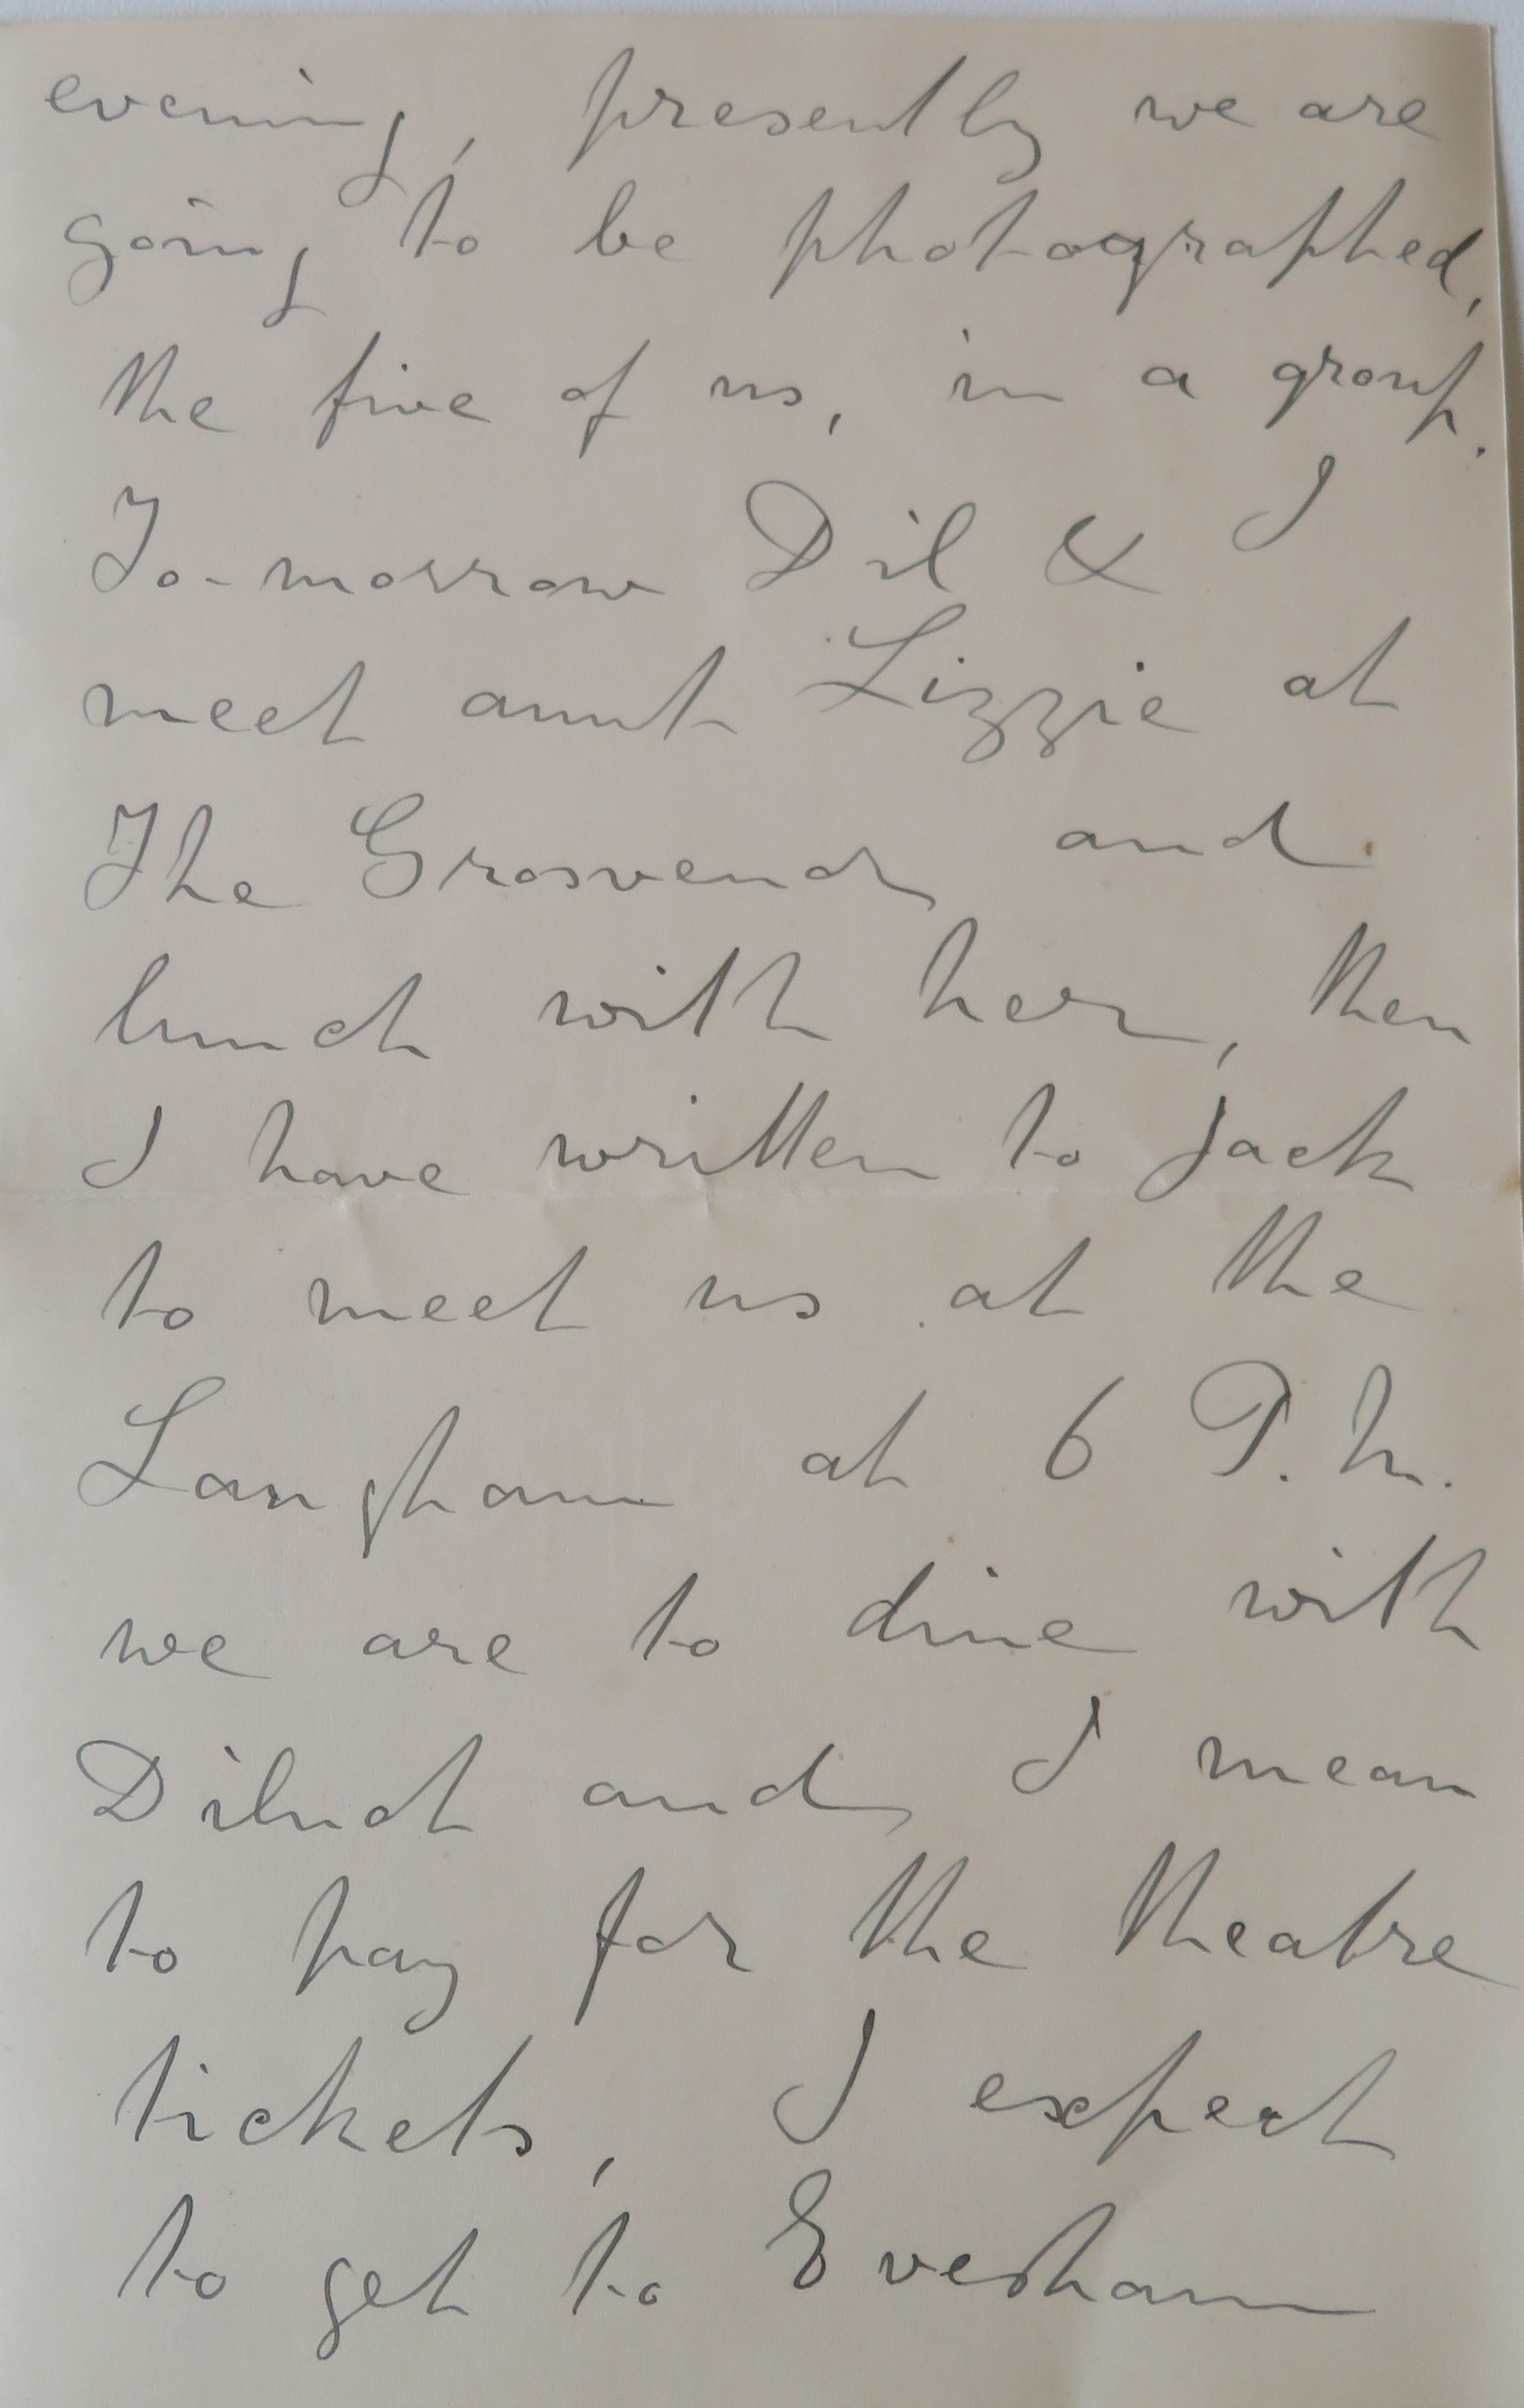 evening, presently we are
going to be photographed,
the five of us, in a group.
To-morrow Dil & I
meet aunt Lizzie at
The Grosvenor and
lunch with her, then
I have written to Jack
to meet us at the
Langham at 6 P.M.
we are to dine with
and I mean
to pay for the theatre
tickets, I expect
to get to Evesham